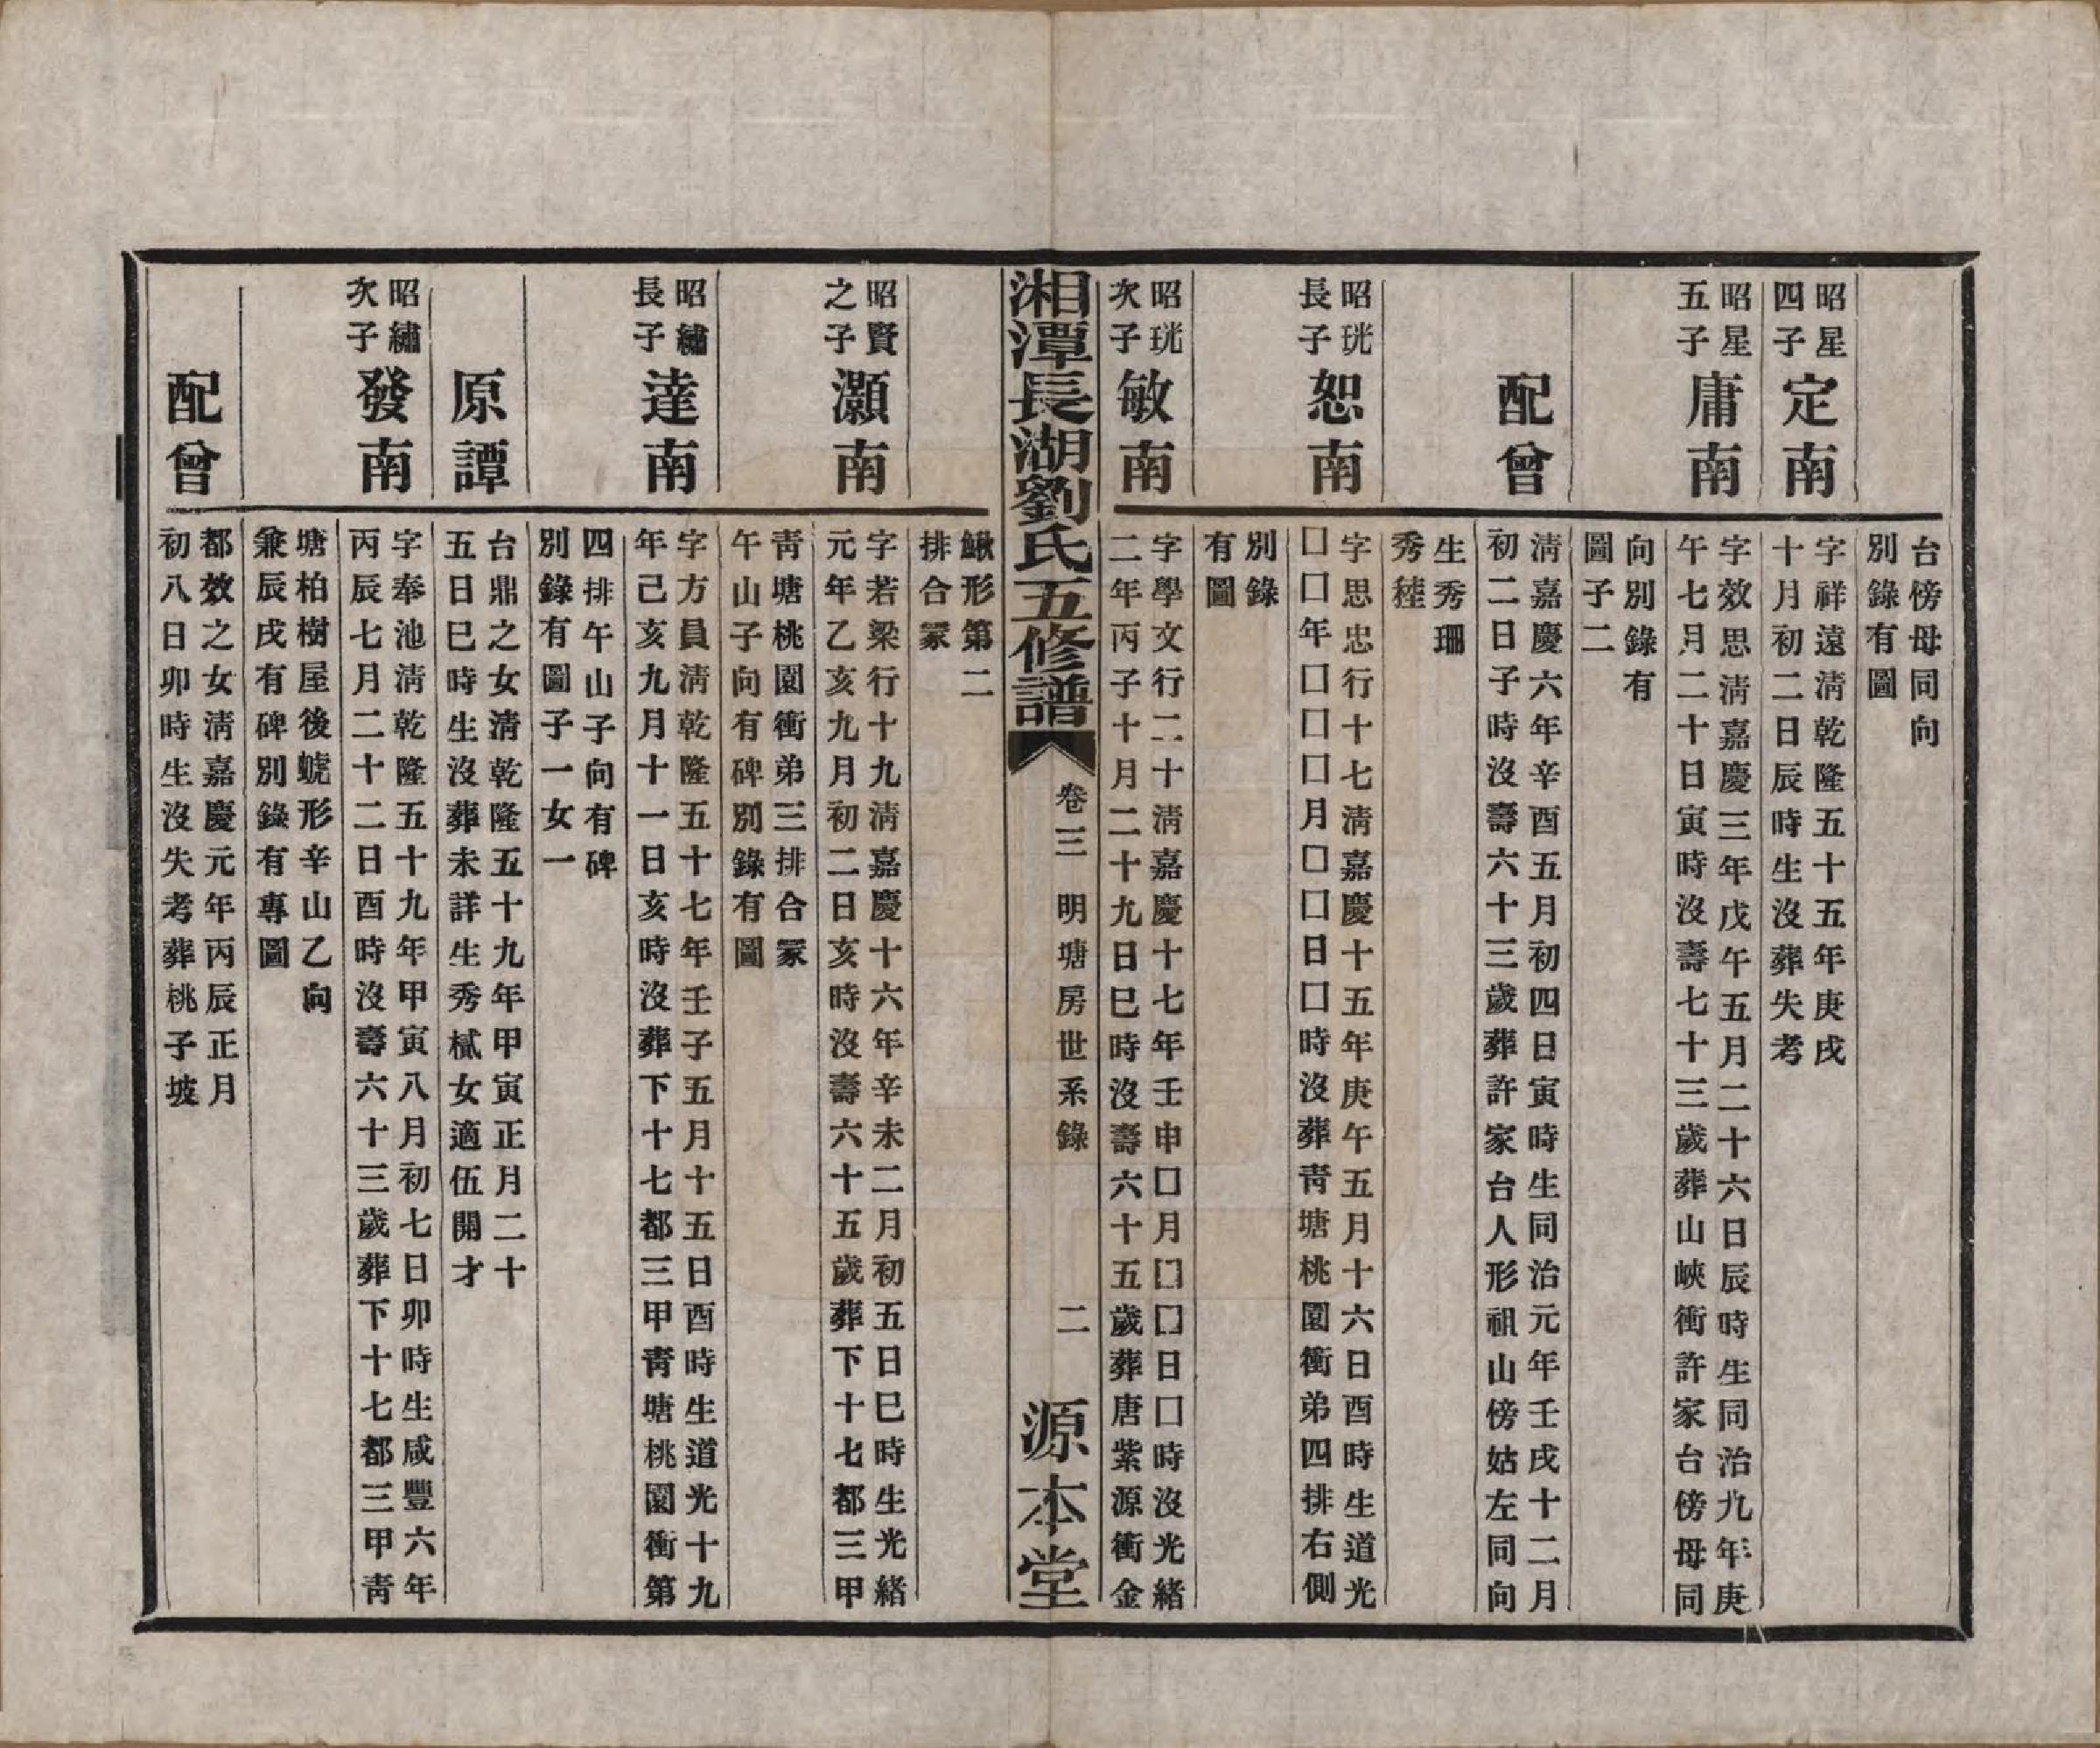 台傍母同向
別錄有圖
昭星
四子
定南
字祥遠淸乾隆五十五年庚戌
十月初二日辰時生沒葬失考
昭星
五子
庸南
字效思淸嘉慶三年戊午五月二十六日辰時生同治九年庚
午七月二十日寅時沒壽七十三歲葬山峽衝許家台傍母同
向別錄有
圖子二
配曾
淸嘉慶六年辛酉五月初四日寅時生同治元年壬戌十二月
初二日子時沒壽六十三歲葬許家台人形祖山傍姑左同向
生秀珊
秀䅅
昭珖
長子
恕南
字思忠行十七淸嘉慶十五年庚午五月十六日酉時生道光
囗囗年囗囗囗月囗囗日囗時沒葬靑塘桃園衝弟四排右側
別錄
有圖
昭珖
次子
敏南
字學文行二十淸嘉慶十七年壬申囗月囗囗日囗時沒光緒
二年丙子十月二十九日巳時沒壽六十五歲葬唐紫源衝金
湘潭長湖劉氏五修譜
卷三
明塘房世系錄
二
源本堂
鰍形第二
排合冢
昭賢
之子
灝南
字若梁行十九淸嘉慶十六年辛未二月初五日巳時生光緒
元年乙亥九月初二日亥時沒壽六十五歲葬下十七都三甲
靑塘桃園衝弟三排合冢
午山子向有碑別錄有圖
昭繡
長子
達南
字方員淸乾隆五十七年壬子五月十五日酉時生道光十九
年己亥九月十一日亥時沒葬下十七都三甲靑塘桃園衝第
四排午山子向有碑
別錄有圖子一女一
原譚
台鼎之女淸乾隆五十九年甲寅正月二十
五日巳時生沒葬未詳生秀樲女適伍開才
昭繡
次子
發南
字奉池淸乾隆五十九年甲寅八月初七日卯時生咸豐六年
丙辰七月二十二日酉時沒壽六十三歲葬下十七都三甲靑
塘柏樹屋後虩形辛山乙向
兼辰戌有碑別錄有專圖
配曾
都效之女淸嘉慶元年丙辰正月
初八日卯時生沒失考葬桃子坡